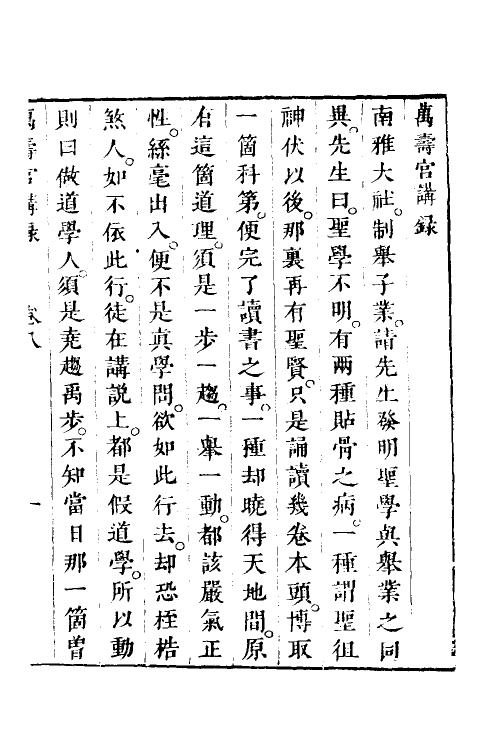 萬壽宮講録
南雅大社制舉子業請先生發明聖學與舉業之同
異先生曰聖學不明有兩種貼骨之病一種謂聖徂
神伏以後那裏再有聖賢只是誦讀幾卷本頭博取
一箇科第便完了讀書之事一種却曉得天地間原
有這箇道理須是一步一趨一舉一動都該嚴氣正
性絲毫出入便不是真學問欲如此行去却恐桎梏
煞人如不依此行徒在講說上都是假道學所以動
則曰做道學人須是堯趨禹步不知當日那一箇曽
萬壽宮講録 卷八 一